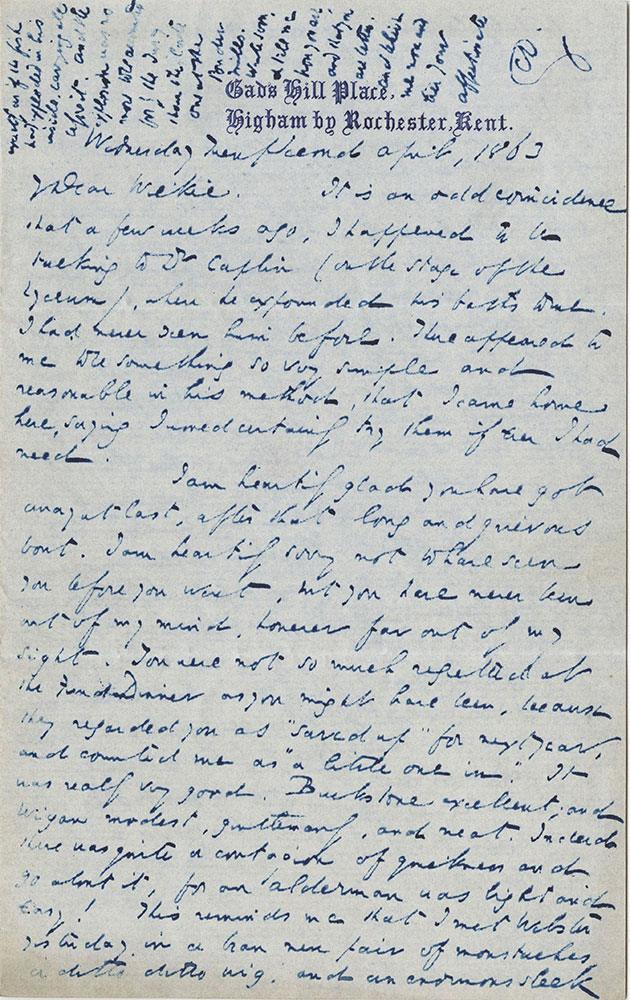 Gads Hill Place,
Higham by Rochester, Kent.
Wednesday Twenty Second April, 1863
My Dear Wilkie. It is an odd coincidence
that a few weeks ago, I happened to be
talking to Dr Caplin (on the stage of the
Lyceum), when he expounded his baths to me.
I had never seen him before. There appeared to
me to be something so very simple and
reasonable in his method, that I came home
here, saying I would certainly try them if ever I had
need.
I am heartily glad you have got
away at last, after that long and grievous
bout. I am heartily sorry not to have seen
you before you went, but you have never been
out of my mind, however far out of my
sight. You were not so much regretted at
the Fund Dinner as you might have been, because
they regarded you as "saved up" for next year,
and counted me as "a little one in". It
was really very good. Buckstone excellent; and
Wigan modest, gentlemanly, and neat. Indeed
there was quite a contagion of quickness and
go about it, for an alderman was light and
easy! This reminds me that I met Webster
yesterday in a bran new pair of moustaches,
a ditto ditto wig, and an enormous sleek
must as if the first
had exploded in his
inside, carrying
spirit and the
explosion
now
for the Inn
than the
one at the
Border
mills.
honor and
and
affectionate
CD